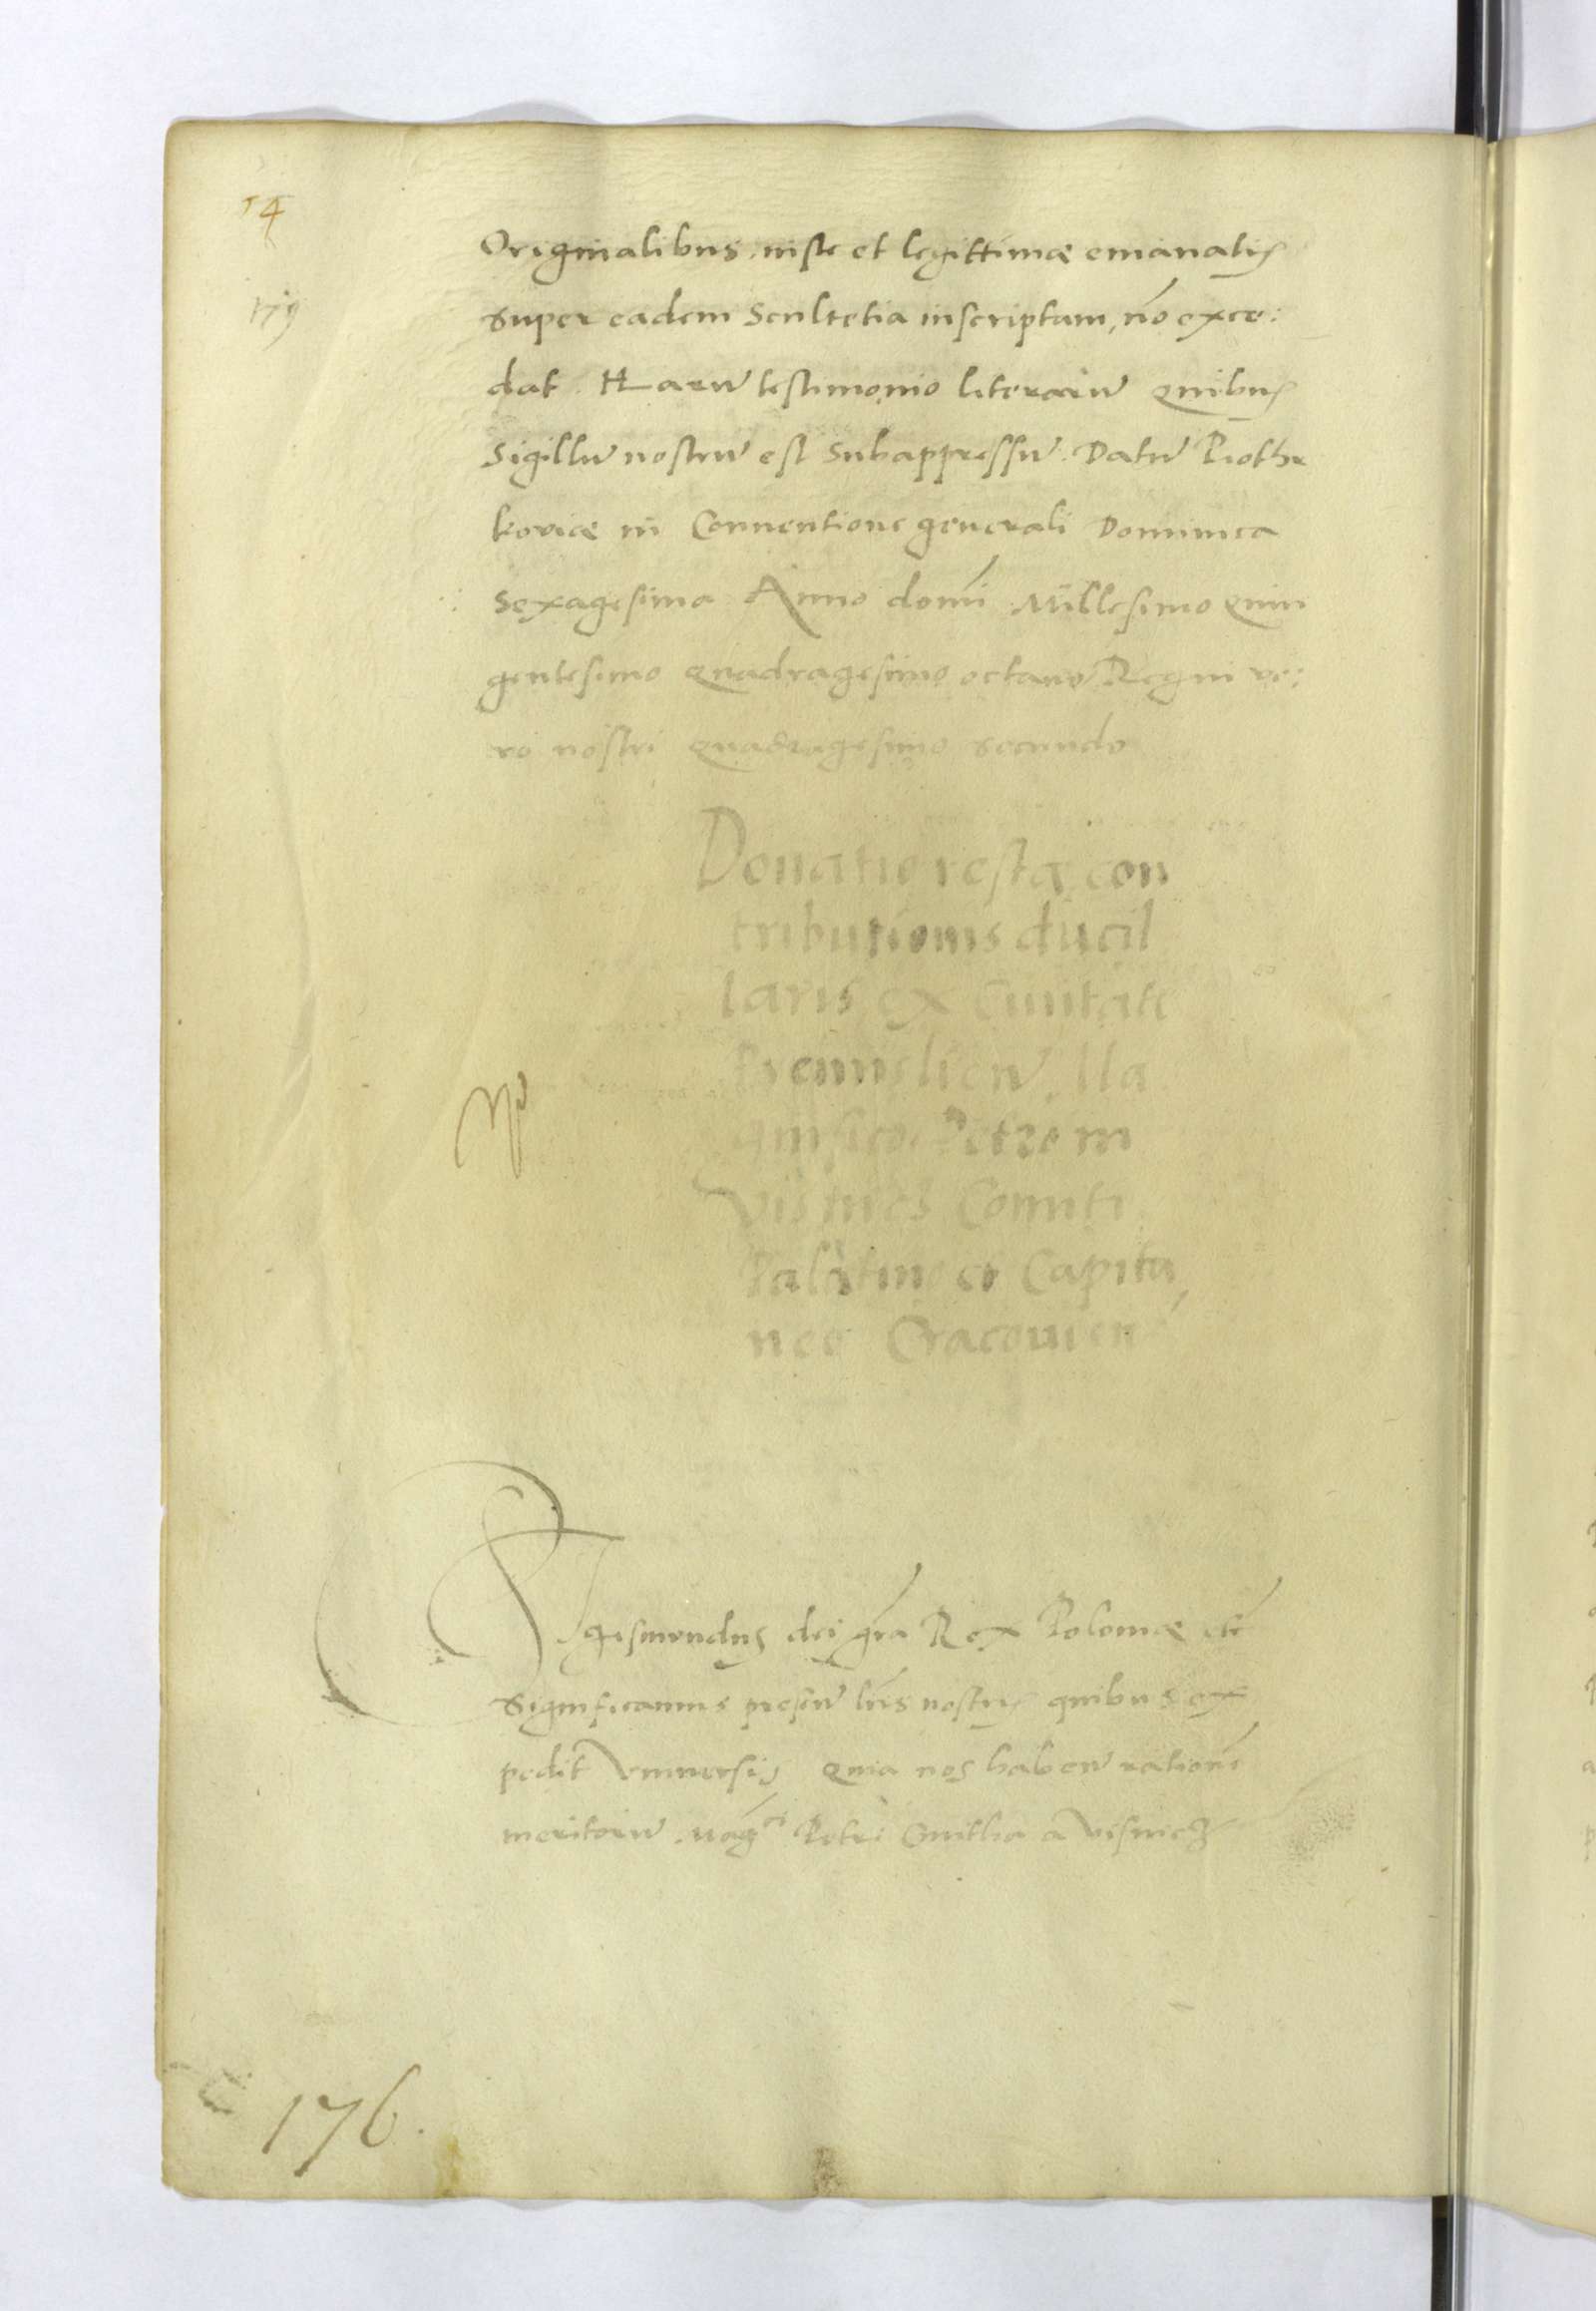 14
179
Originalibus, iuste et legittimæ emanatis
super eadem Scultetia inscriptam, nō exce:
dat. Harū testimonio literarū quibus
Sigillū nostrū est subappressū. Datū Piothr
koviæ in Conventione generali Dominica
Sexagesima Anno domī Millesimo quin
gentesimo quadragesimo octavo Regni ve:
ro nostri quadragesimo secundo
Donatio restæ con
tributionis ducil
laris ex Civitate
Premislien̄, Ma
gnifico Petro in
Visnicz Comiti
Palatino et Capita
neo Cracovien̄
Sigismundus dei grā Rex Poloniæ etc̄
Significamus presen̄ lrīs nostris quibus ex
pedit Vniversis quia nos haben̄ rationē
meritorū Mag^ci Petri Cmitha a Visnicz
176.